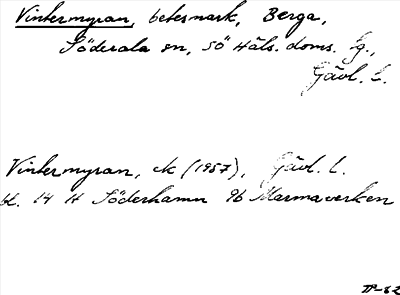 Vintermyran, betesmark, Berga,
Söderala sn, SÖ Häls. doms. tg.,
Gävl. L.
Vintermyran, ek (1957), Gävl. L.
bl. 14 H Söderhamn 9b Marmaverken